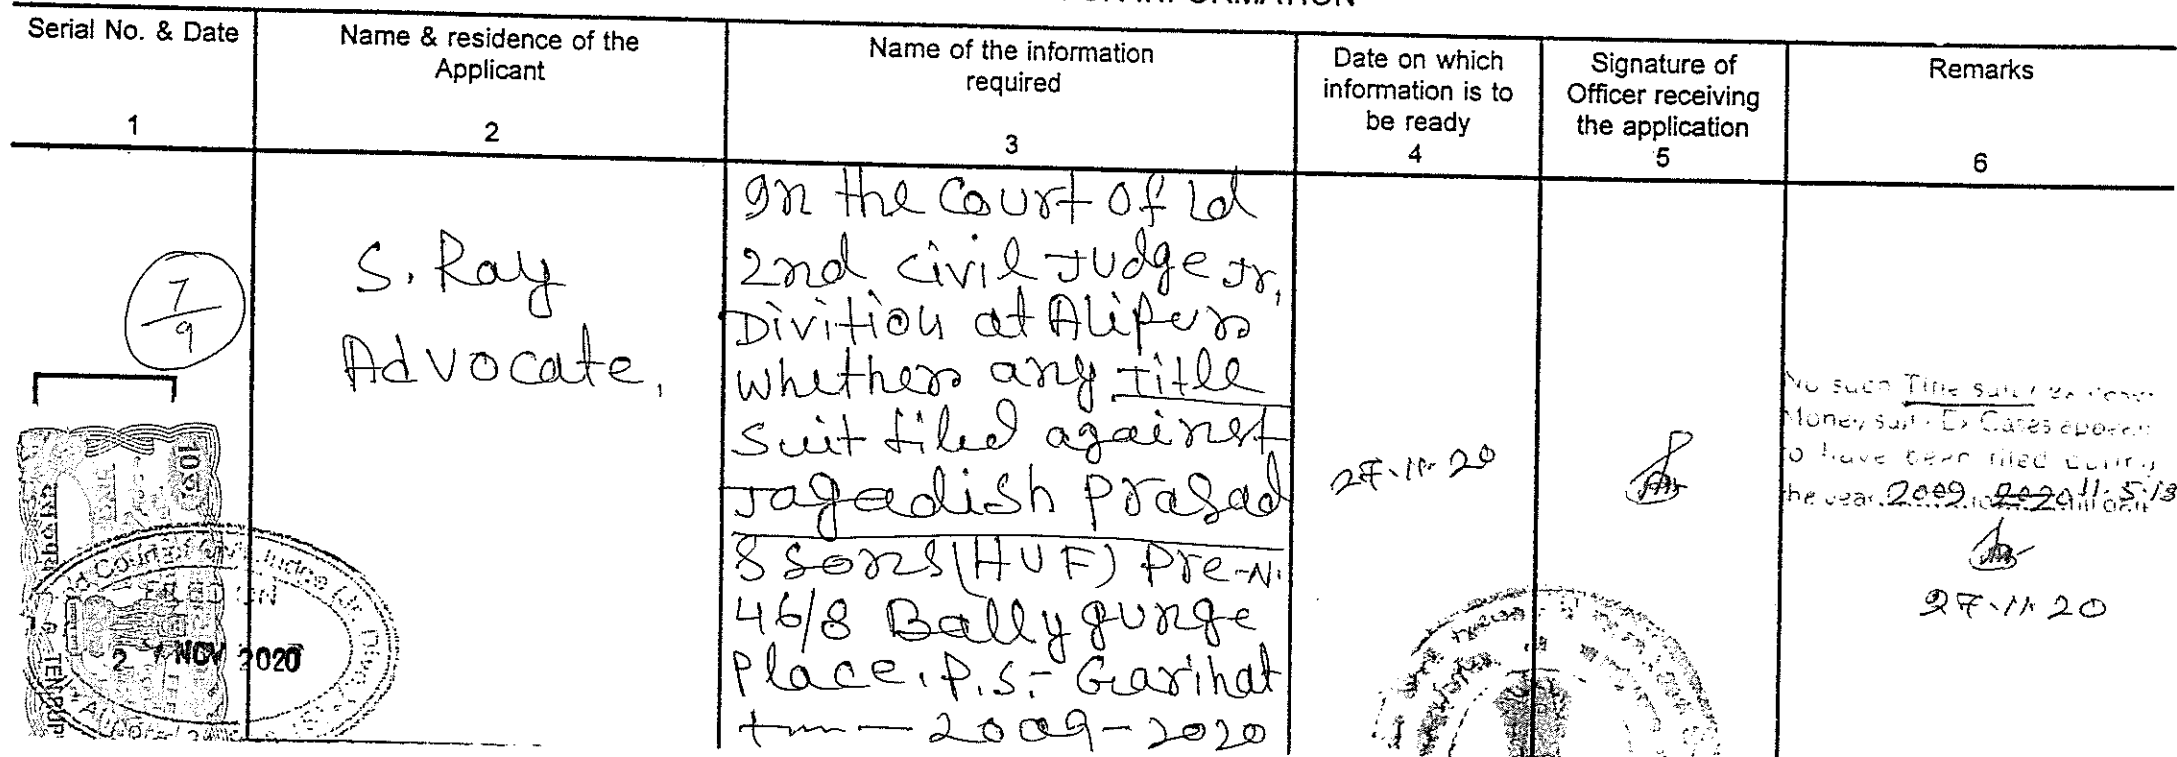 INFORMATION
Serial No. & Date
1
Name & residence of the
Applicant
2
Name of the information
required
3
Date on which
information is to
be ready
4
Signature of
Officer receiving
the application
5
Remarks
6
7/9
S. Ray
Advocate,
In the Court of Ld
2nd Civil Judge Jr.
Divition at Alipur
whether any Title
Suit filed against
Jagadish Prasad
& Sons (HUF) Pre-N.
46/8 Ballygunge
Place. P.S:- Garihat
2009-2020
27.11.20
No such Title suit
Money suit Ex Cases appear
to have been filed during
the year 2009 2020
27.11.20
Court of Civil Judge Jr. Divn
FILED ON
NOV 2020
TEN RUP